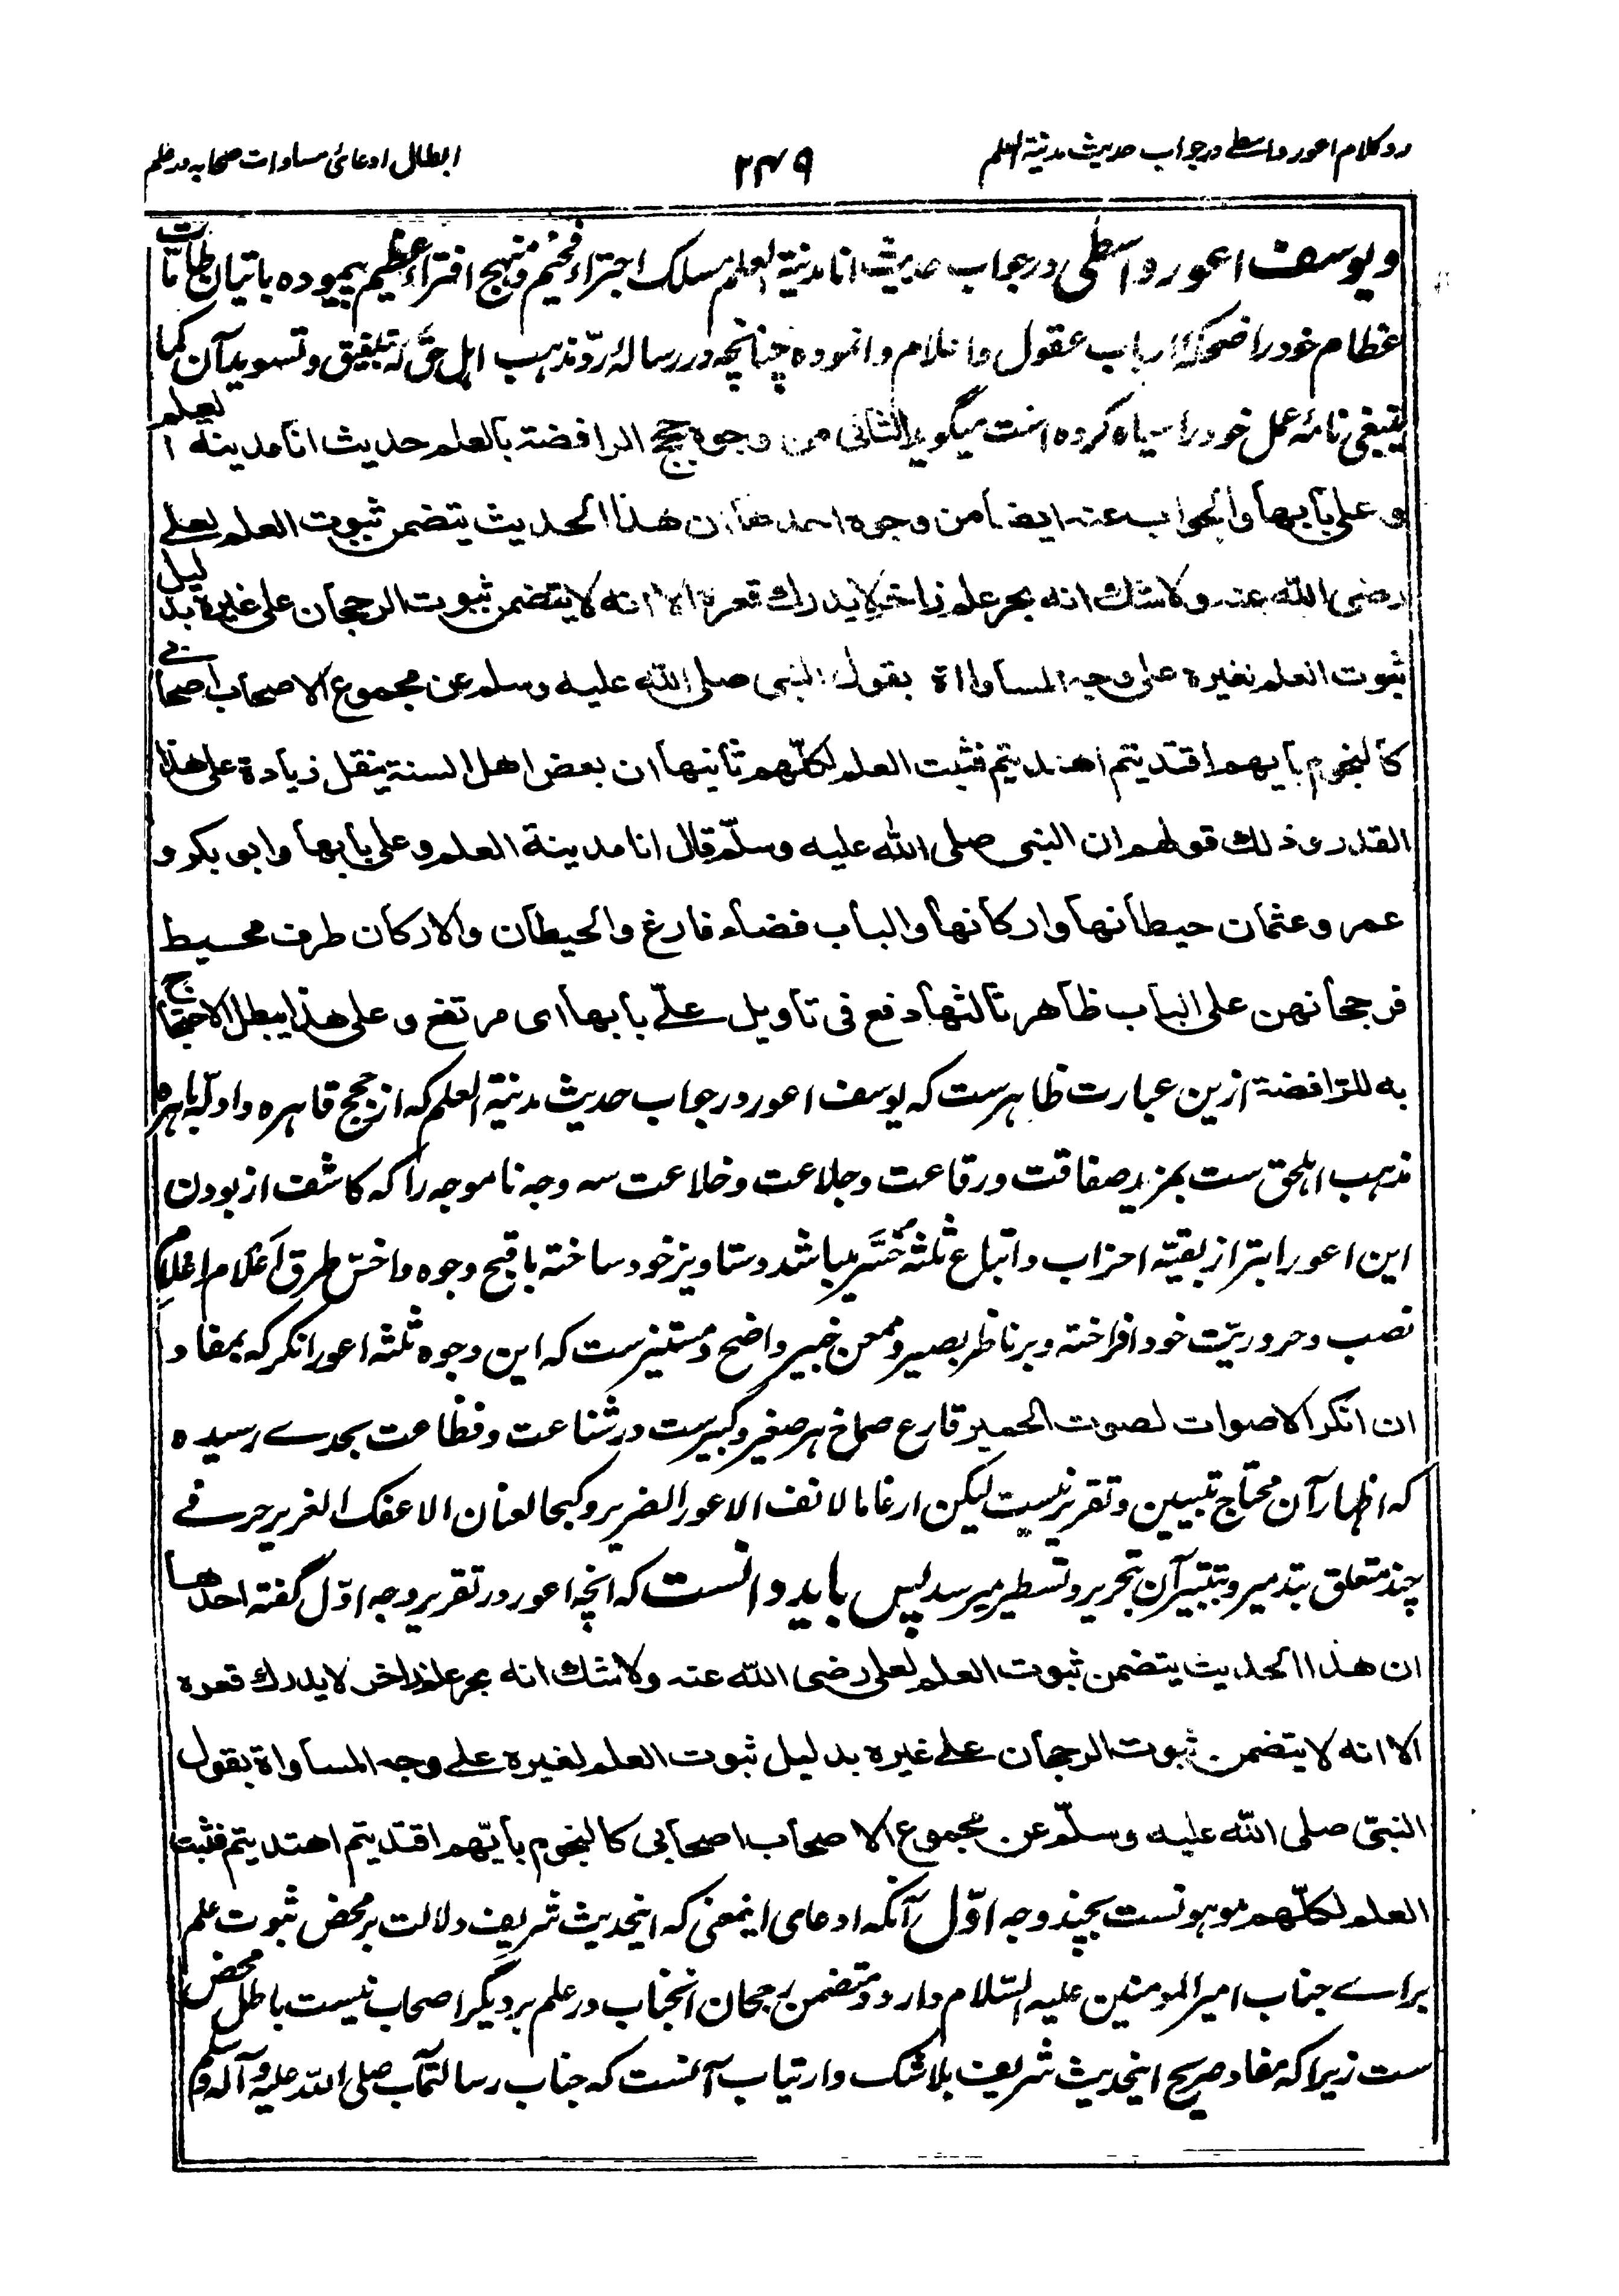 رد کلام اعور واسطے در جواب حدیث مدینة العلم
۲۴۹
ابطال ادعائ مساوات صحابه در علم
و یوسف اعور واسطی در جواب حدیث انا مدینة العلم مسلک اجتراء فخیم و منهج افتراء عظیم پیموده باتیان طامّات
عظام خود را ضحکهٔ ارباب عقول و احلام وانموده چنانچه در رسالهٔ ردّ مذهب اهل حقّ که تلفیق و تسوید آن کما
ینبغی نامهٔ عمل خود را سیاه کرده است میگوید الثانی من وجوه حجج الرافضة بالعلم حدیث انا مدینة العلم
و علی بابها والجواب عنه ایضا من وجوه احدها ان هذا الحدیث یتضمن ثبوت العلم لعلے
رضی الله عنه ولا شك انه بحر علم زاخر لا یدرك قعره الا انه لا یتضمن ثبوت الرجحان علی غیره بدلیل
ثبوت العلم لغیره علی وجه المساواة بقول النبی صلی الله علیه وسلم عن مجموع الاصحاب اصحابے
کالنجوم بایهم اقتدیتم اهتدیتم فثبت العلم لکلّهم ثانیها ان بعض اهل السنة ینقل زیادة علی هذا
القدر و ذلك قولهم ان النبی صلی الله علیه وسلّم قال انا مدینة العلم و علی بابها وابو بکر و
عمر و عثمان حیطانها وارکانها والباب فضاء فارغ والحیطان والارکان طرف محیط
فرجحانهن علی الباب ظاهر ثالثها دفع فی تاویل علیّ بابها ای مرتفع و علی هذا یبطل الاحتجاج
به للرّافضة ازین عبارت ظاهرست که یوسف اعور در جواب حدیث مدینة العلم که از حجج قاهره و ادلّهٔ باهره
مذهب اهلحق ست بمزید صفاقت و رقاعت و جلاعت و خلاعت سه وجه ناموجه را که کاشف از بودن
این اعور ابتر از بقیّه احزاب و اتباع ثلثه خُسَّر میباشد دستاویز خود ساخته باقبح وجوه و اخسّ طرق اَعْلام اعلامِ
نصب و حروریّت خود افراخته و بر ناظر بصیر و ممعن خبیر واضح و مستنیرست که این وجوه ثلثه اعور انکر که بمفاد
ان انکر الاصوات لصوت الحمیر قارع صماخ هر صغیر و کبیرست در شناعت و فظاعت بحدے رسیده
که اظهار آن محتاج تبیین و تقریر نیست لیکن ارغاما لانف الاعور الضریر و کبحا لعنان الاعفک الغریر حرفے
چند متعلق بتدمیر و تتبیر آن بتحریر و تسطیر میرسد پس باید دانست که انچه اعور در تقریر وجه اوّل گفته احدها
ان هذا الحدیث یتضمن ثبوت العلم لعلی رضی الله عنه ولا شك انه بحر علم زاخر لا یدرك قعره
الا انه لا یتضمن ثبوت الرجحان علے غیره بدلیل ثبوت العلم لغیره علے وجه المساواة بقول
النبیّ صلی الله علیه وسلّم عن مجموع الاصحاب اصحابی کالنجوم بایّهم اقتدیتم اهتدیتم فثبت
العلم لکلّهم موهونست بچند وجه اوّل آنکه ادعای اینمعنی که اینحدیث شریف دلالت بر محض ثبوت علم
براے جناب امیر المومنین علیه السّلام دارد و متضمن رجحان آنجناب در علم بر دیگر اصحاب نیست باطل محض
ست زیرا که مفاد صریح اینحدیث شریف بلا شک و ارتیاب آنست که جناب رسالتمآب صلی الله علیه و آله وسلم